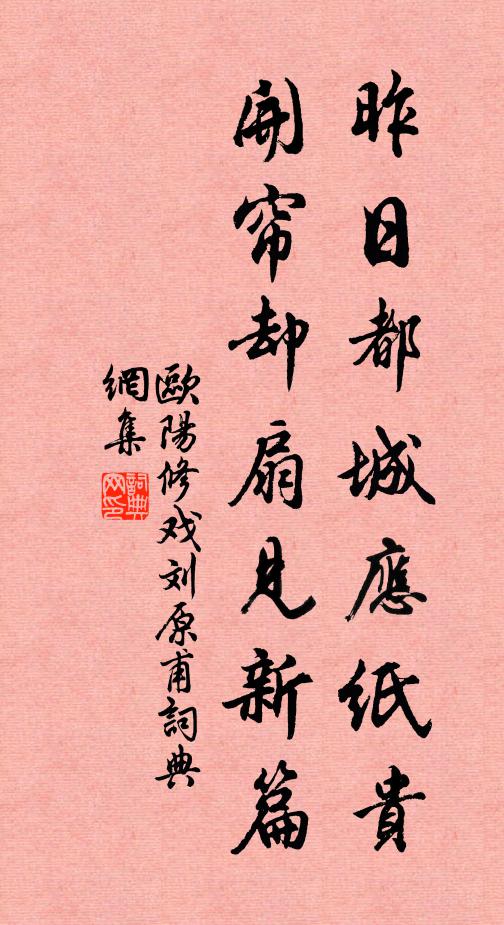 昨日都城應紙貴
開帘却扇見新篇
歐陽修戏刘原甫詞典
網集
詞典
网印